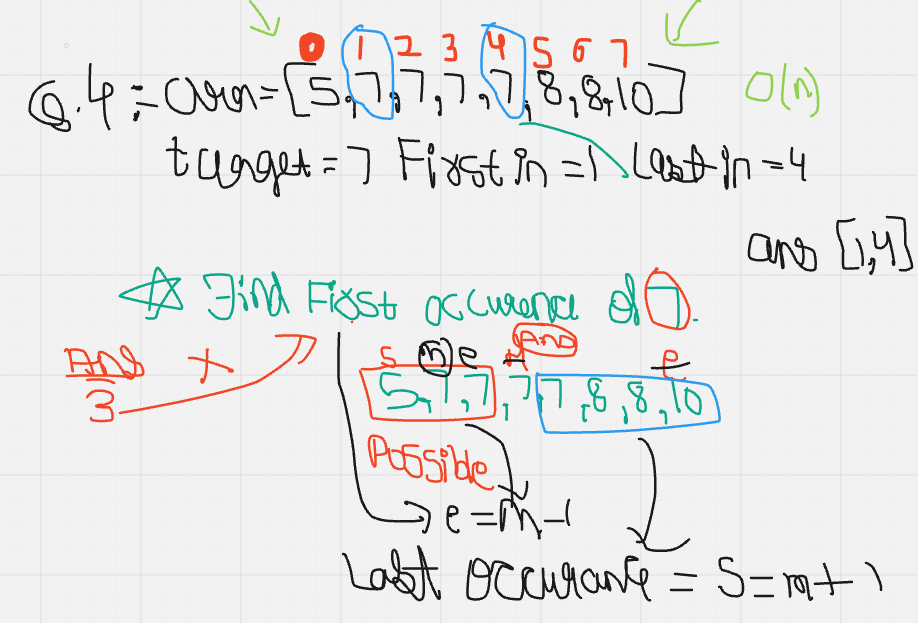 0 1 2 3 4 5 6 7
Q.4 :- arr = [5,7,7,7,7,8,8,10] O(n)
target = 7 First in = 1 Last in = 4
ans [1,4]
☆ Find First occurence of 7.
Ans
3
s m e Ans e
5,7,7,7,7,8,8,10
Possible
e = m-1
Last occurance = s = m+1